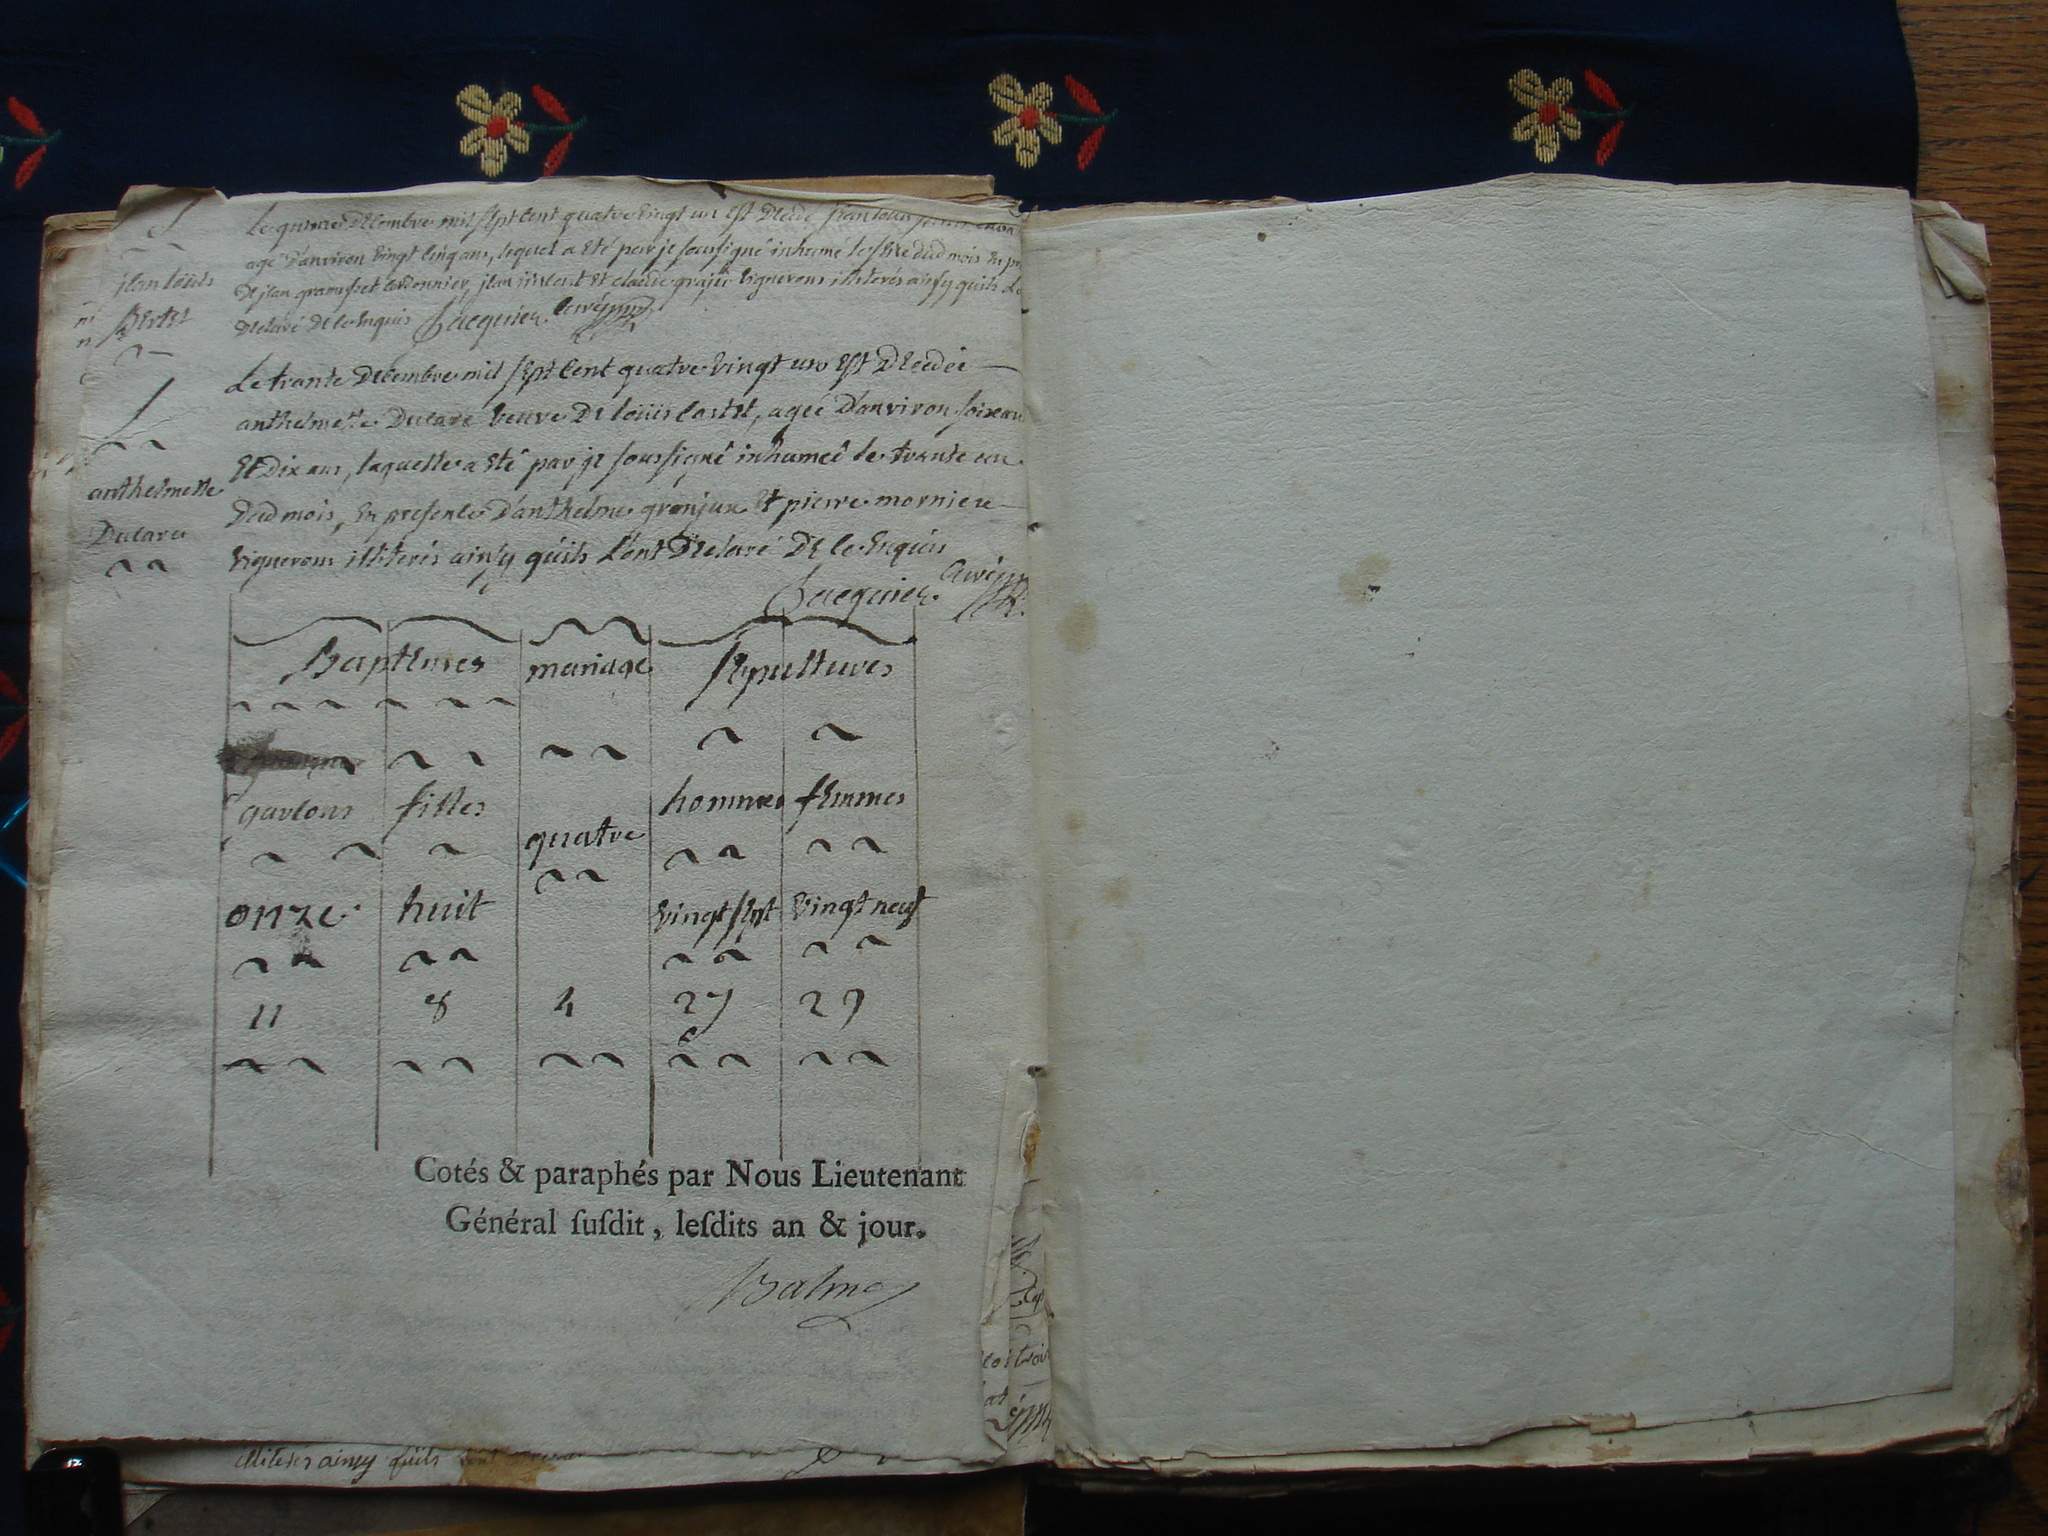 Le quinze decembre mil sept cent quatre vingt un est decedé jean louis
agé d'anviron vingt cinq ans, lequel a eté par je soussigné inhumé le seize dud mois en
de jean gramfret cordonnier, jean vincent et claude grajeu vignerons illiterés ainsy quils
declaré de ce enquis Jacquier curé
jean loüis
Bertet
Le trante decembre mil sept cent quatre vingt un est decedeé
anthelmette Ducarre veuve de loüis Castet, ageé d'anviron soixan
et Dix ans, laquelle a eté par je soussigné inhumeé le trante un
dud mois, en presence d'anthelme granjux et pierre morniere
vignerons illiterés ainsy quils l'ont declaré de ce enquis
Jacquier curé
anthelmette
Ducarre
Baptemes mariage sepultures
garcons filles hommes femmes
quatre
onze huit vingt sept vingt neuf
11 8 4 27 29
Cotés & paraphés par Nous Lieutenant
Général ſuſdit, leſdits an & jour.
Balme
illiterés ainsy quils